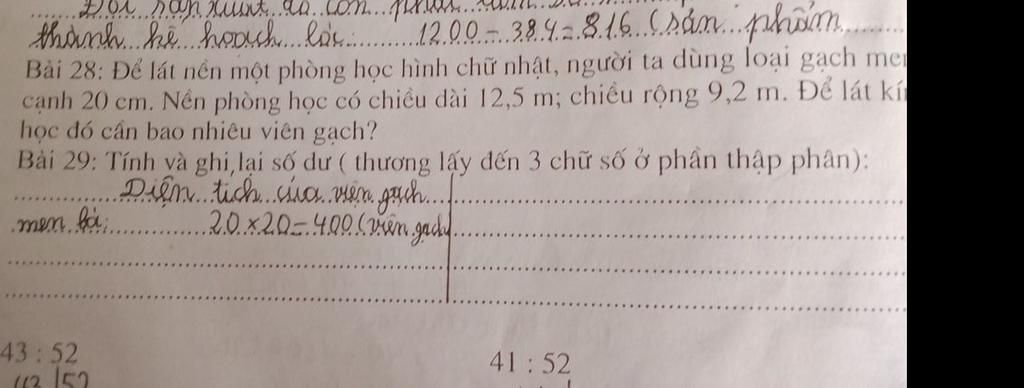 Đội sản xuất đó còn phải làm
thành kế hoạch là: 1200 - 384 = 816 (sản phẩm
Bài 28: Để lát nền một phòng học hình chữ nhật, người ta dùng loại gạch men
cạnh 20 cm. Nền phòng học có chiều dài 12,5 m; chiều rộng 9,2 m. Để lát kín
học đó cần bao nhiêu viên gạch?
Bài 29: Tính và ghi lại số dư ( thương lấy đến 3 chữ số ở phần thập phân):
Diện tích của viên gạch
men là: 20 × 20 = 400 (viên gạch)
43 : 52
41 : 52
52